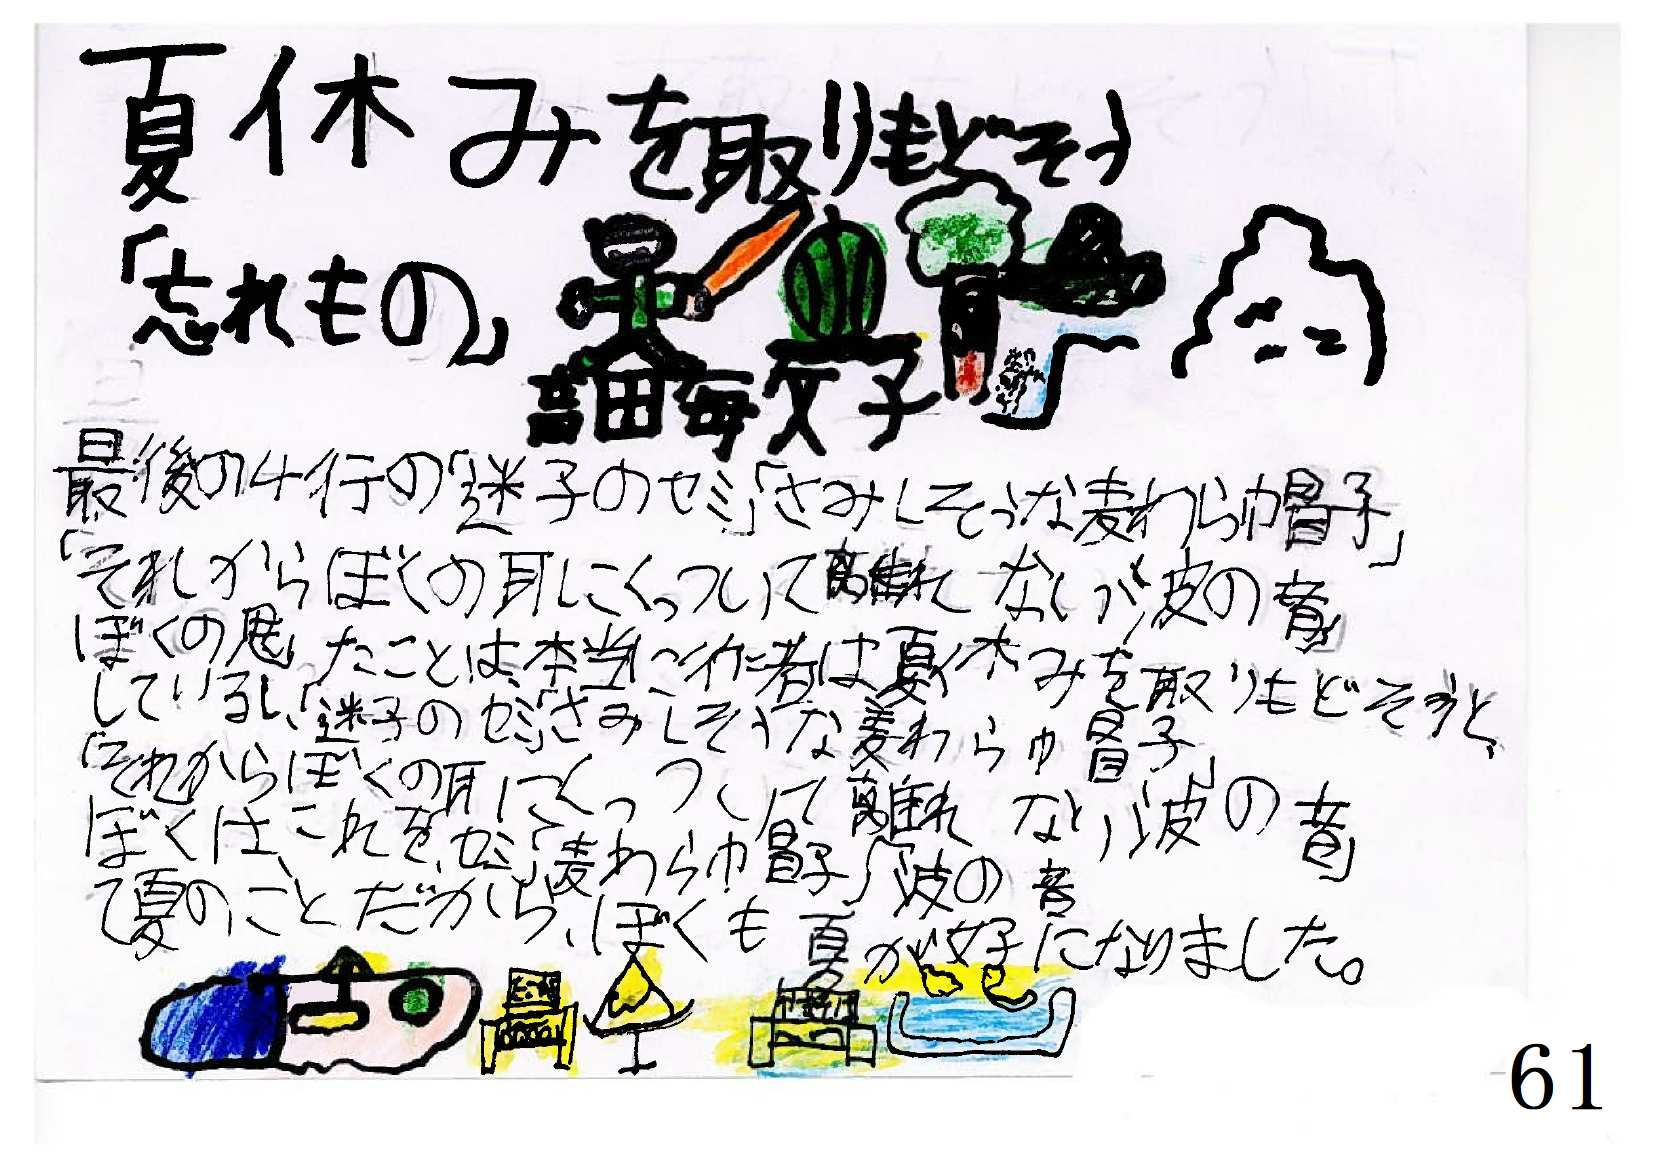 夏休みを取りもどそう
「忘れもの」
高田敏子
最後の4行の「迷子のセミ」「さみしそうな麦わら帽子」
「それからぼくの耳にくっついて離れない波の音」
ぼくの思ったことは、本当に作者は夏休みを取りもどそうと
しているし、「迷子のセミ」「さみしそうな麦わら帽子」
「それからぼくの耳にくっついて離れない波の音」
ぼくは、これを、「セミ」「麦わら帽子」「波の音
て夏のことだから、ぼくも夏が好きになりました。
61